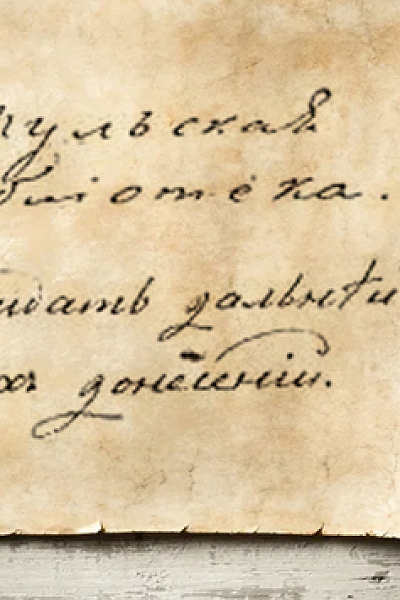 тульская
бліотека.
идать дальнѣи
хъ донесеніи.